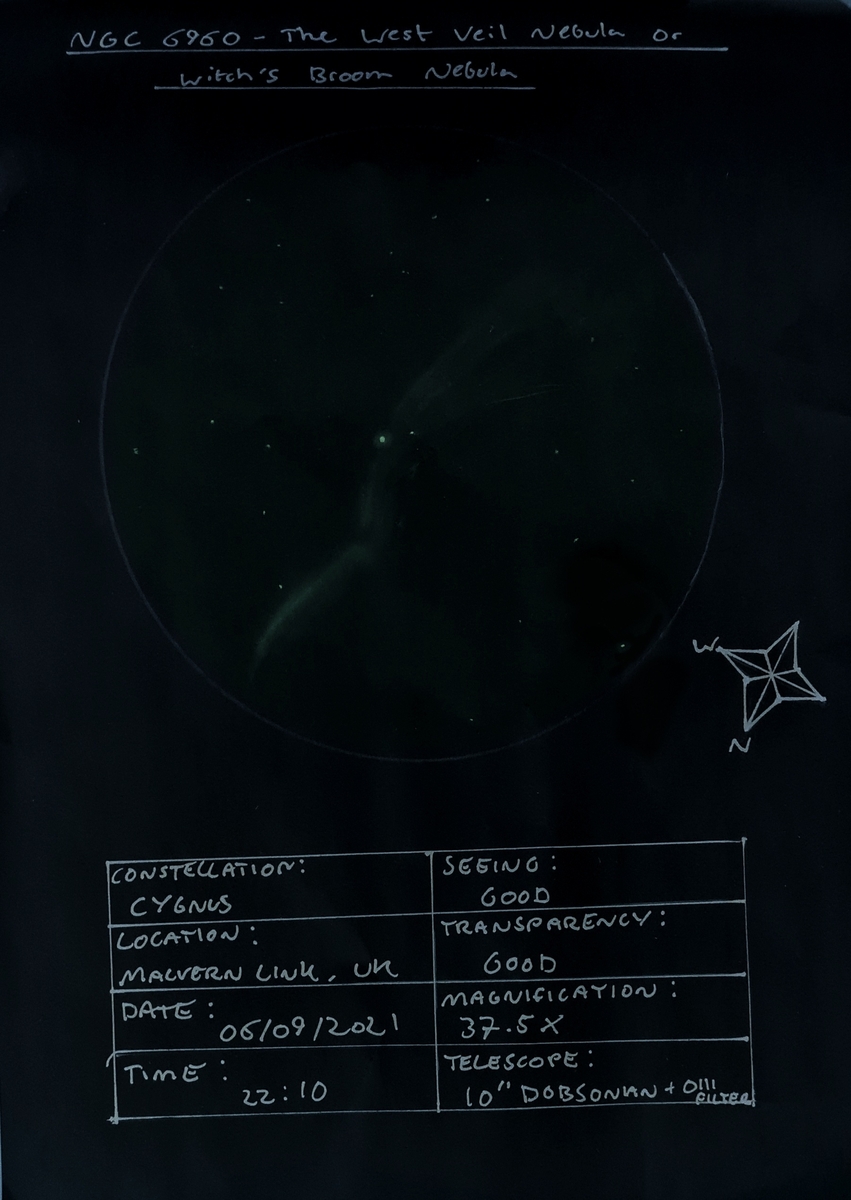 NGC 6960 - The West Veil Nebula or
Witch's Broom Nebula
W
N
CONSTELLATION:
CYGNUS
SEEING:
GOOD
LOCATION:
MALVERN LINK, UK
TRANSPARENCY:
GOOD
DATE:
06/09/2021
MAGNIFICATION:
37.5X
TIME:
22:10
TELESCOPE:
10" DOBSONIAN + OIII
FILTER